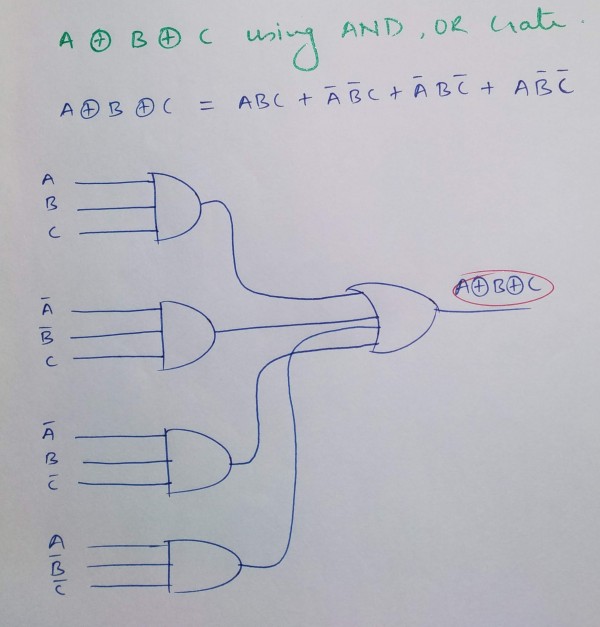 A ⊕ B ⊕ C using AND, OR Gate.
A⊕B⊕C = ABC + A̅B̅C + A̅BC̅ + AB̅C̅
A
B
C
A̅
B̅
C
A̅
B
C̅
A
B̅
C̅
A⊕B⊕C